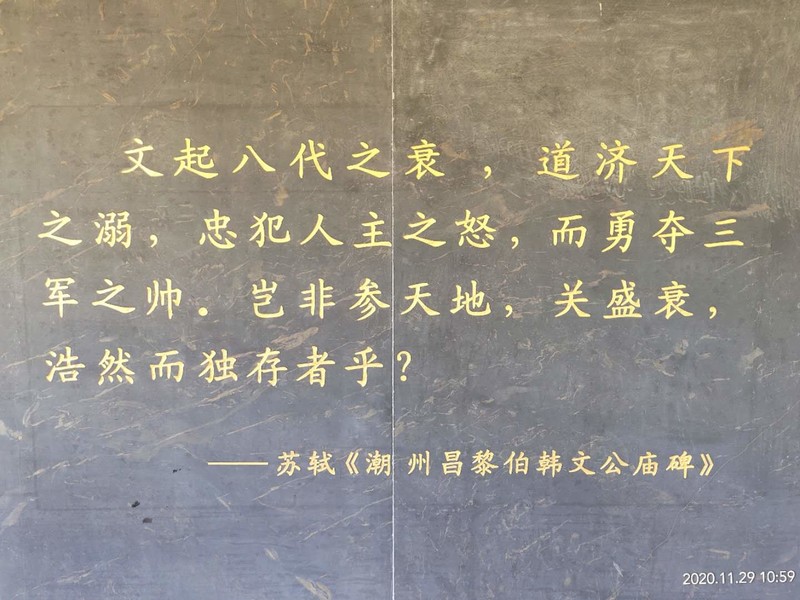 文起八代之衰，道济天下
之溺，忠犯人主之怒，而勇夺三
军之帅。岂非参天地，关盛衰，
浩然而独存者乎？
——苏轼《潮州昌黎伯韩文公庙碑》
2020.11.29 10:59